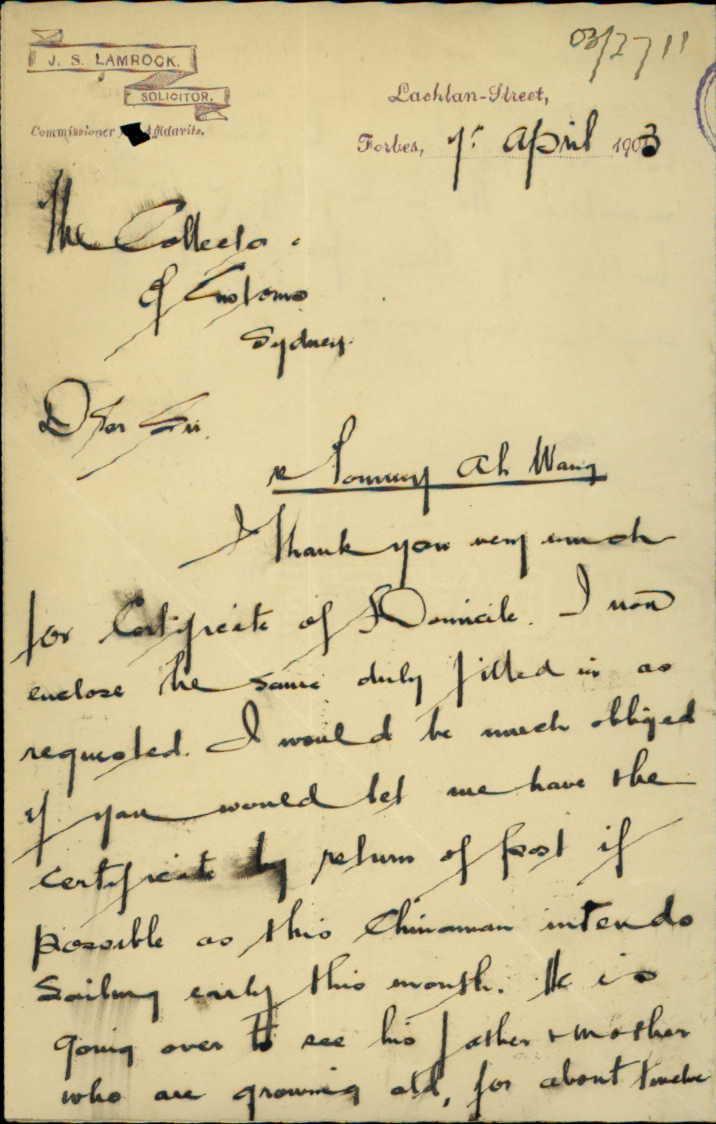 03/2711
J. S. LAMROCK.
SOLICITOR.
Commissioner Affidavits.
Lachlan-Street,
Forbes, 7th April 1903
The Collector
of Customs
Sydney.
Dear Sir.
re Tommy Ah Wang
I thank you very much
for Certificate of Domicile. I now
enclose the same duly filled in as
requested. I would be much obliged
if you would let me have the
certificate by return of post if
possible as this Chinaman intends
Sailing early this month. He is
going over to see his father & mother
who are growing old, for about twelve